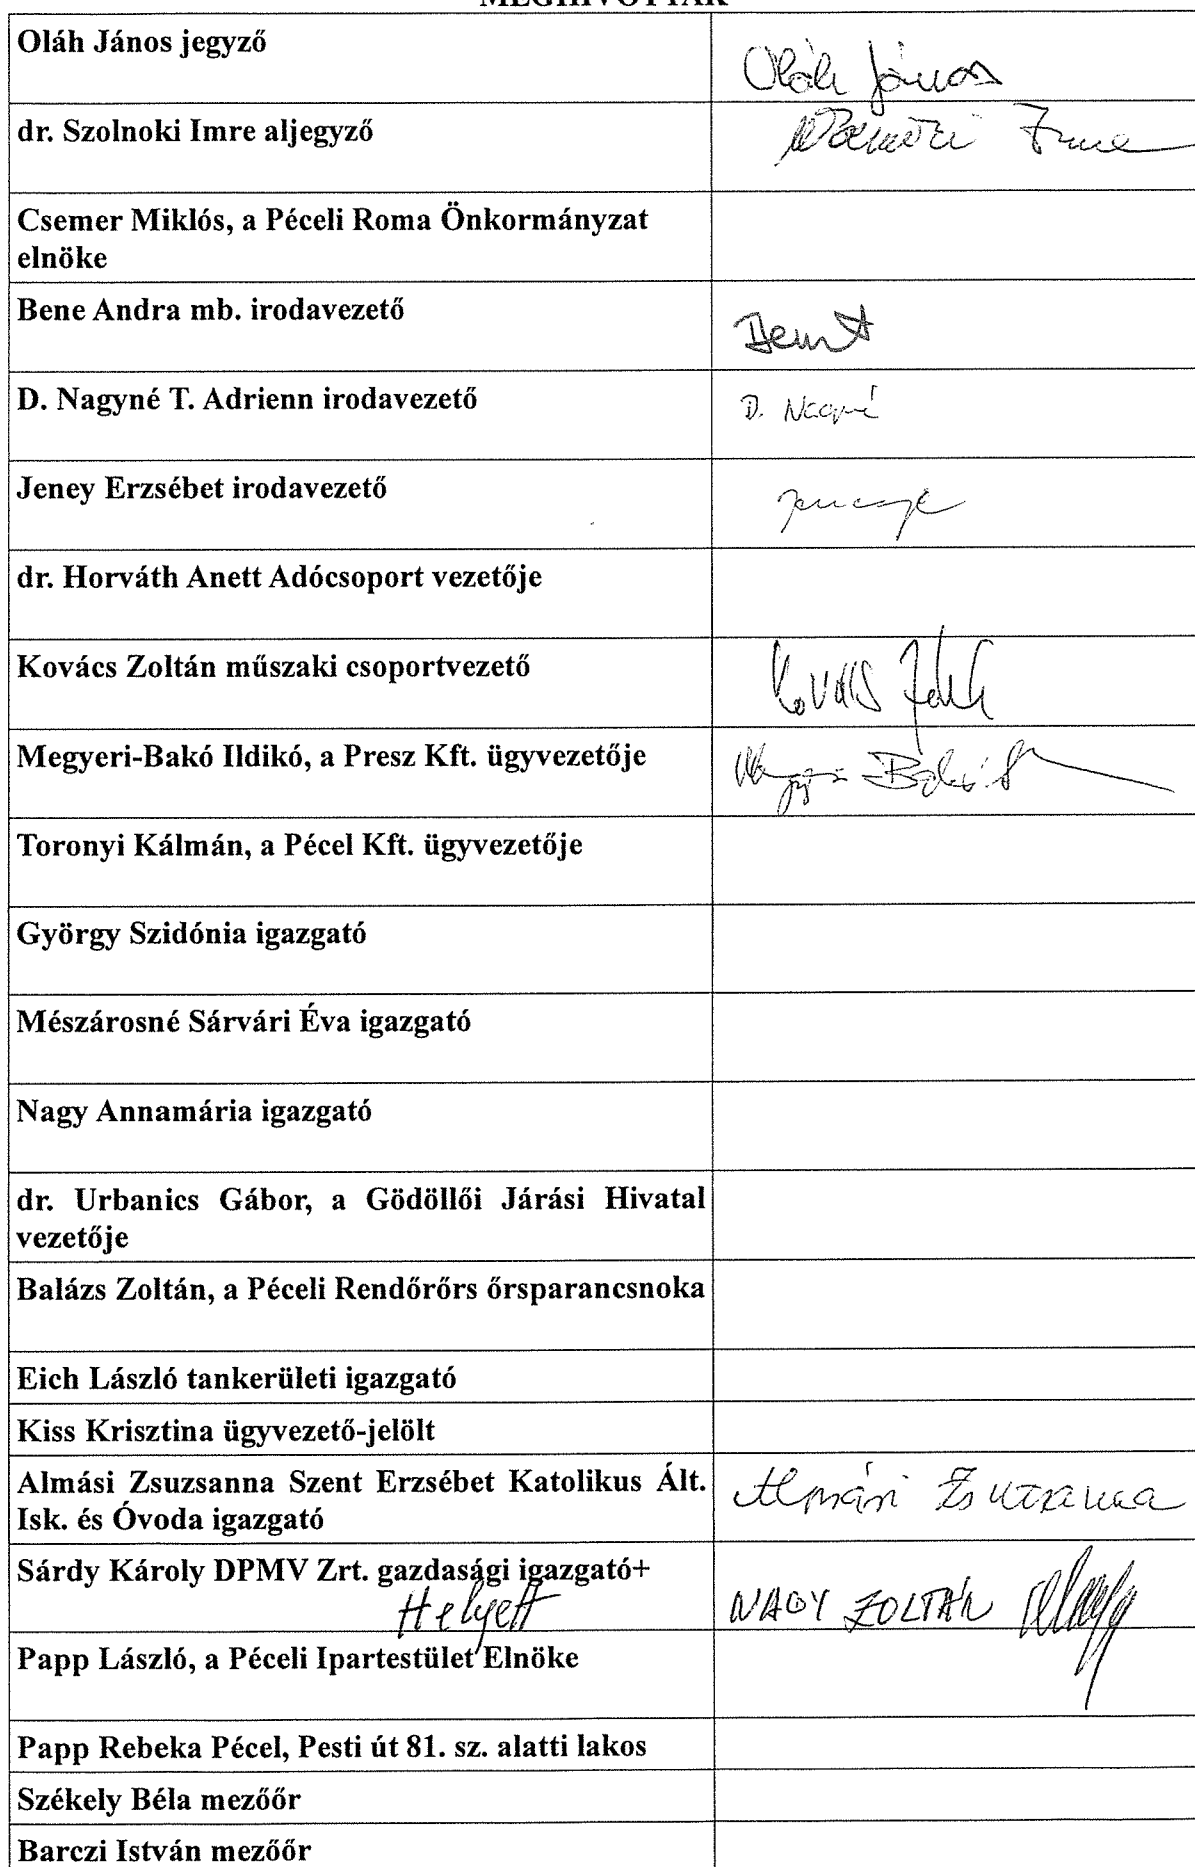 MEGHÍVOTTAK
Oláh János jegyző
Oláh János
dr. Szolnoki Imre aljegyző
Szolnoki Imre
Csemer Miklós, a Péceli Roma Önkormányzat
elnöke
Bene Andra mb. irodavezető
Bene A
D. Nagyné T. Adrienn irodavezető
D. Nagyné
Jeney Erzsébet irodavezető
dr. Horváth Anett Adócsoport vezetője
Kovács Zoltán műszaki csoportvezető
Kovács Zoltán
Megyeri-Bakó Ildikó, a Presz Kft. ügyvezetője
Toronyi Kálmán, a Pécel Kft. ügyvezetője
György Szidónia igazgató
Mészárosné Sárvári Éva igazgató
Nagy Annamária igazgató
dr. Urbanics Gábor, a Gödöllői Járási Hivatal
vezetője
Balázs Zoltán, a Péceli Rendőrőrs őrsparancsnoka
Eich László tankerületi igazgató
Kiss Krisztina ügyvezető-jelölt
Almási Zsuzsanna Szent Erzsébet Katolikus Ált.
Isk. és Óvoda igazgató
Almási Zsuzsanna
Sárdy Károly DPMV Zrt. gazdasági igazgató+
Helyett
NAGY ZOLTÁN
Papp László, a Péceli Ipartestület Elnöke
Papp Rebeka Pécel, Pesti út 81. sz. alatti lakos
Székely Béla mezőőr
Barczi István mezőőr